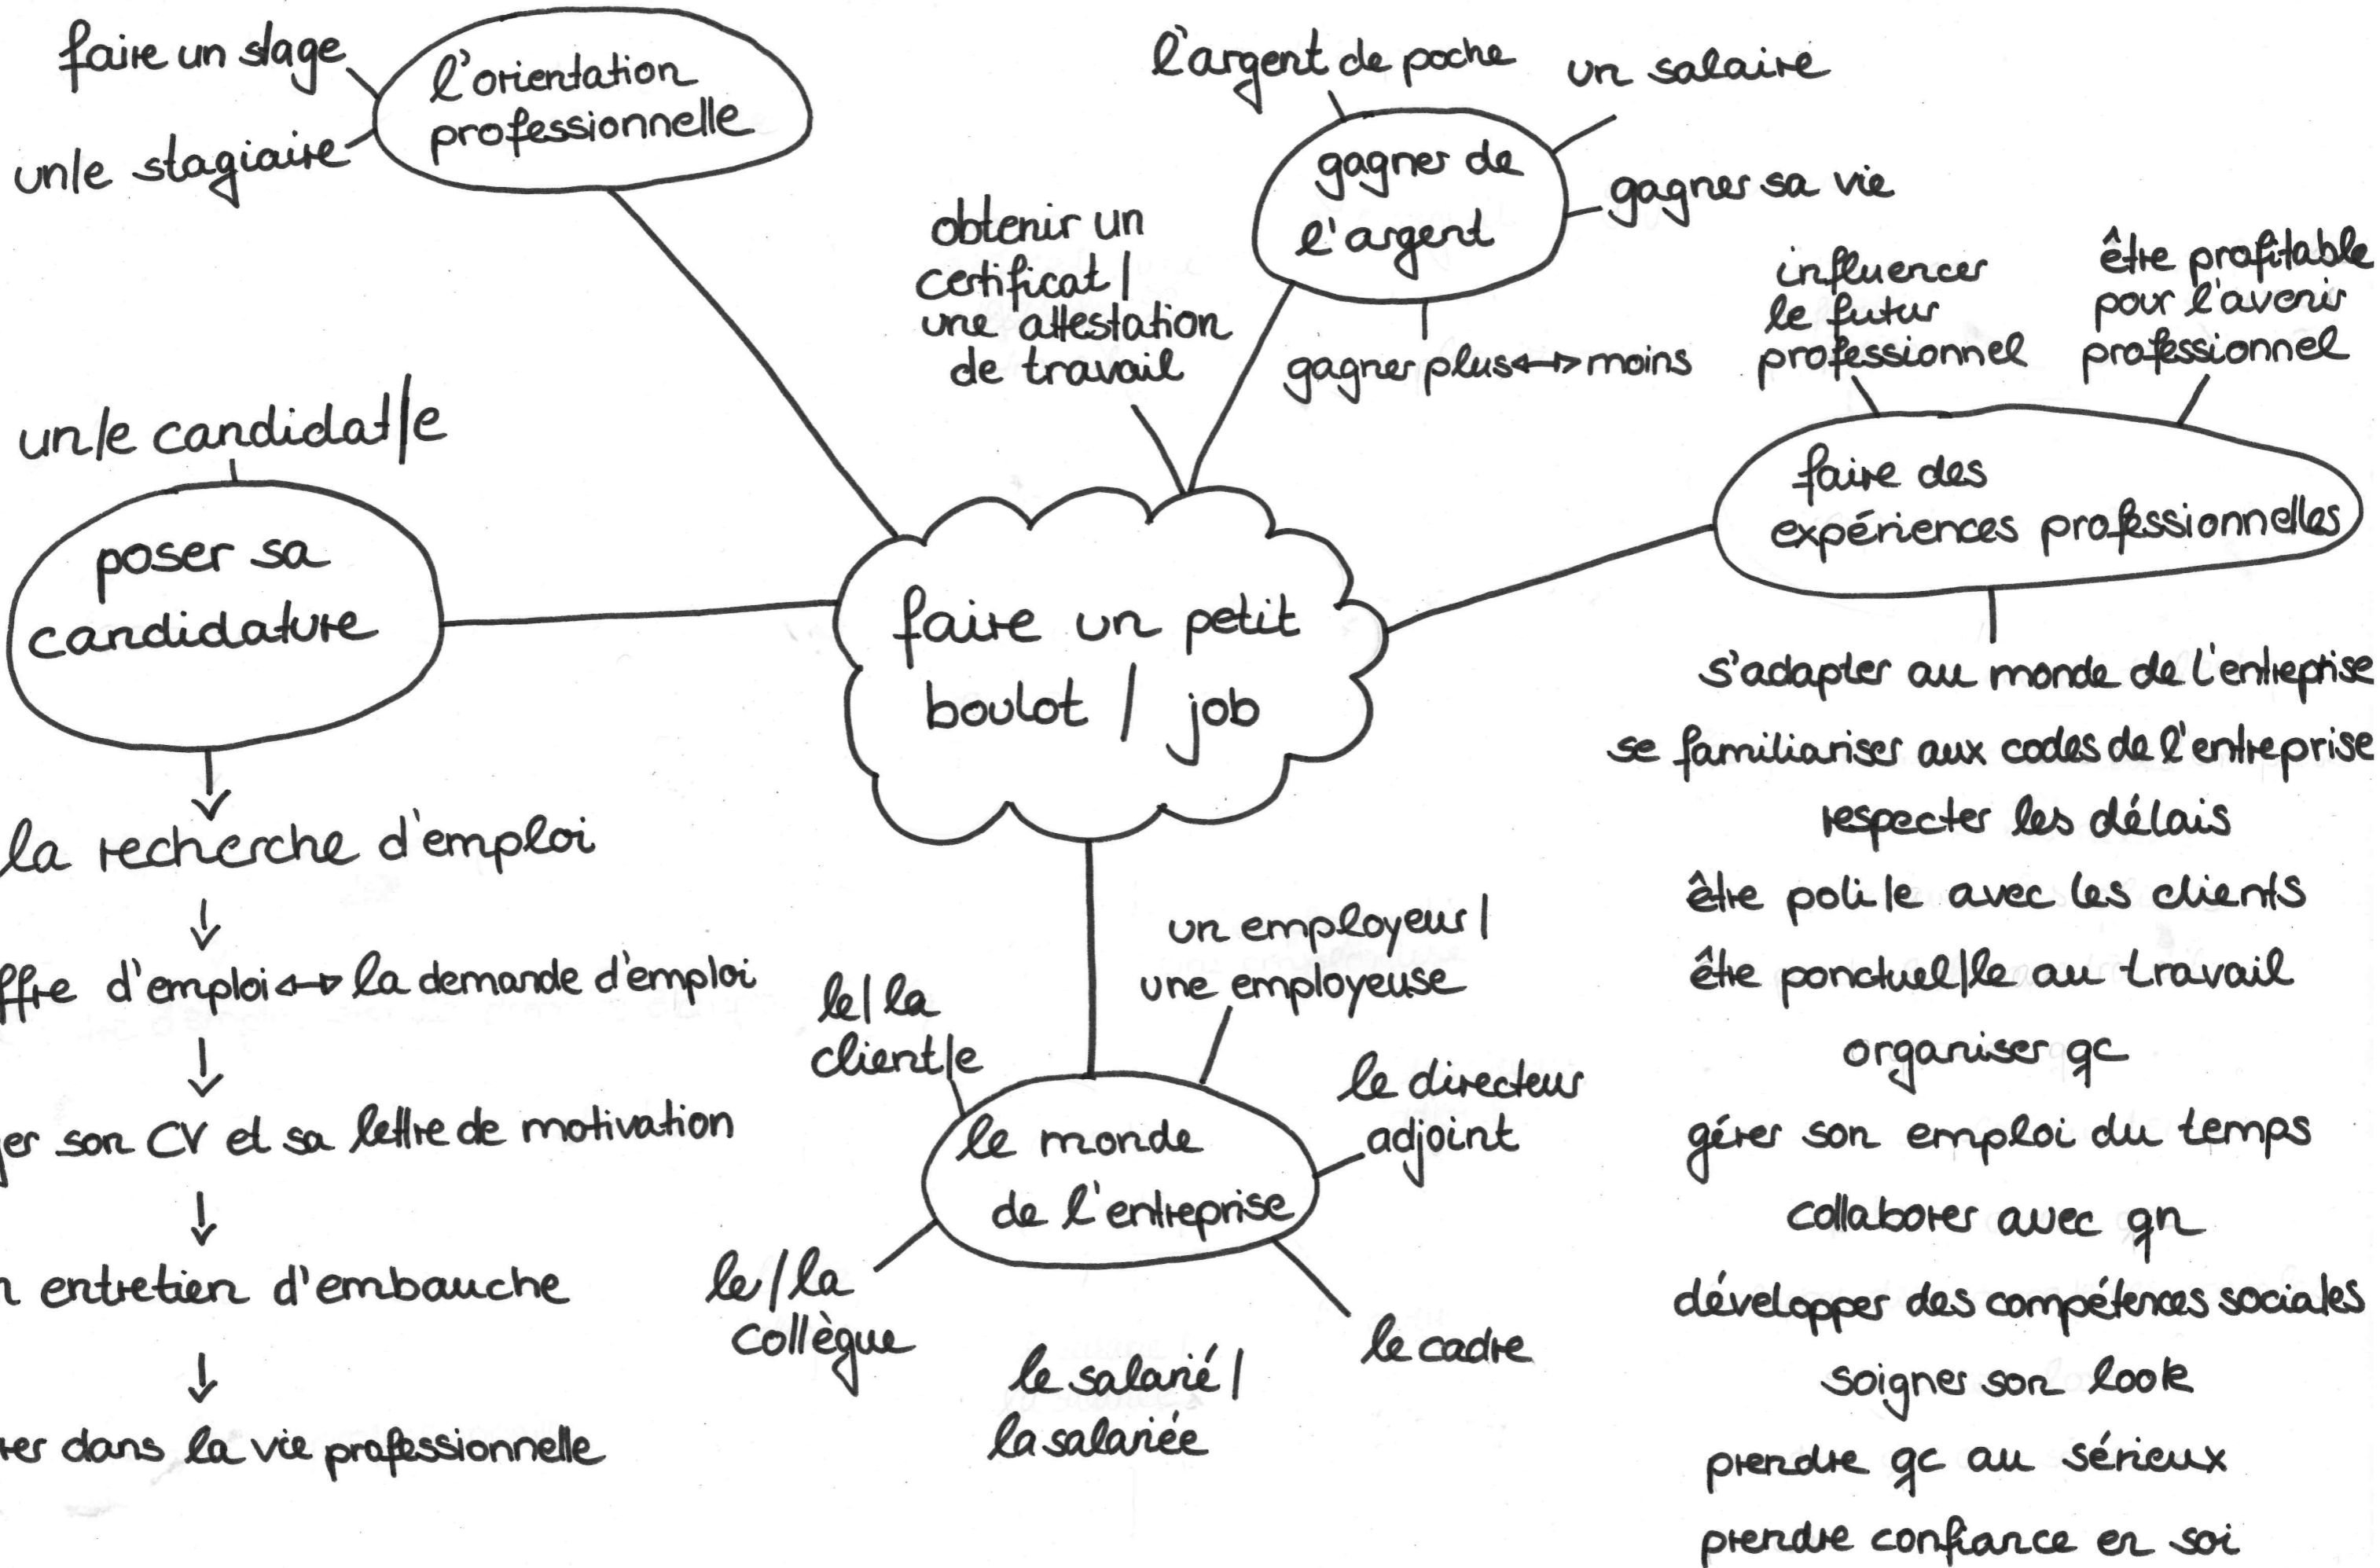 faire un stage
un/e stagiaire
l'orientation
professionnelle
l'argent de poche
un salaire
gagner de
l'argent
gagner sa vie
gagner plus ↔ moins
obtenir un
certificat /
une attestation
de travail
influencer
le futur
professionnel
être profitable
pour l'avenir
professionnel
faire des
expériences professionnelles
s'adapter au monde de l'entreprise
se familiariser aux codes de l'entreprise
respecter les délais
être poli/e avec les clients
être ponctuel/le au travail
organiser qc
gérer son emploi du temps
collaborer avec qn
développer des compétences sociales
soigner son look
prendre qc au sérieux
prendre confiance en soi
un/e candidat/e
poser sa
candidature
↓
la recherche d'emploi
↓
ffre d'emploi ↔ la demande d'emploi
↓
ger son CV et sa lettre de motivation
↓
n entretien d'embauche
↓
rer dans la vie professionnelle
faire un petit
boulot / job
le/la
client/e
un employeur /
une employeuse
le directeur
adjoint
le monde
de l'entreprise
le/la
collègue
le salarié /
la salariée
le cadre